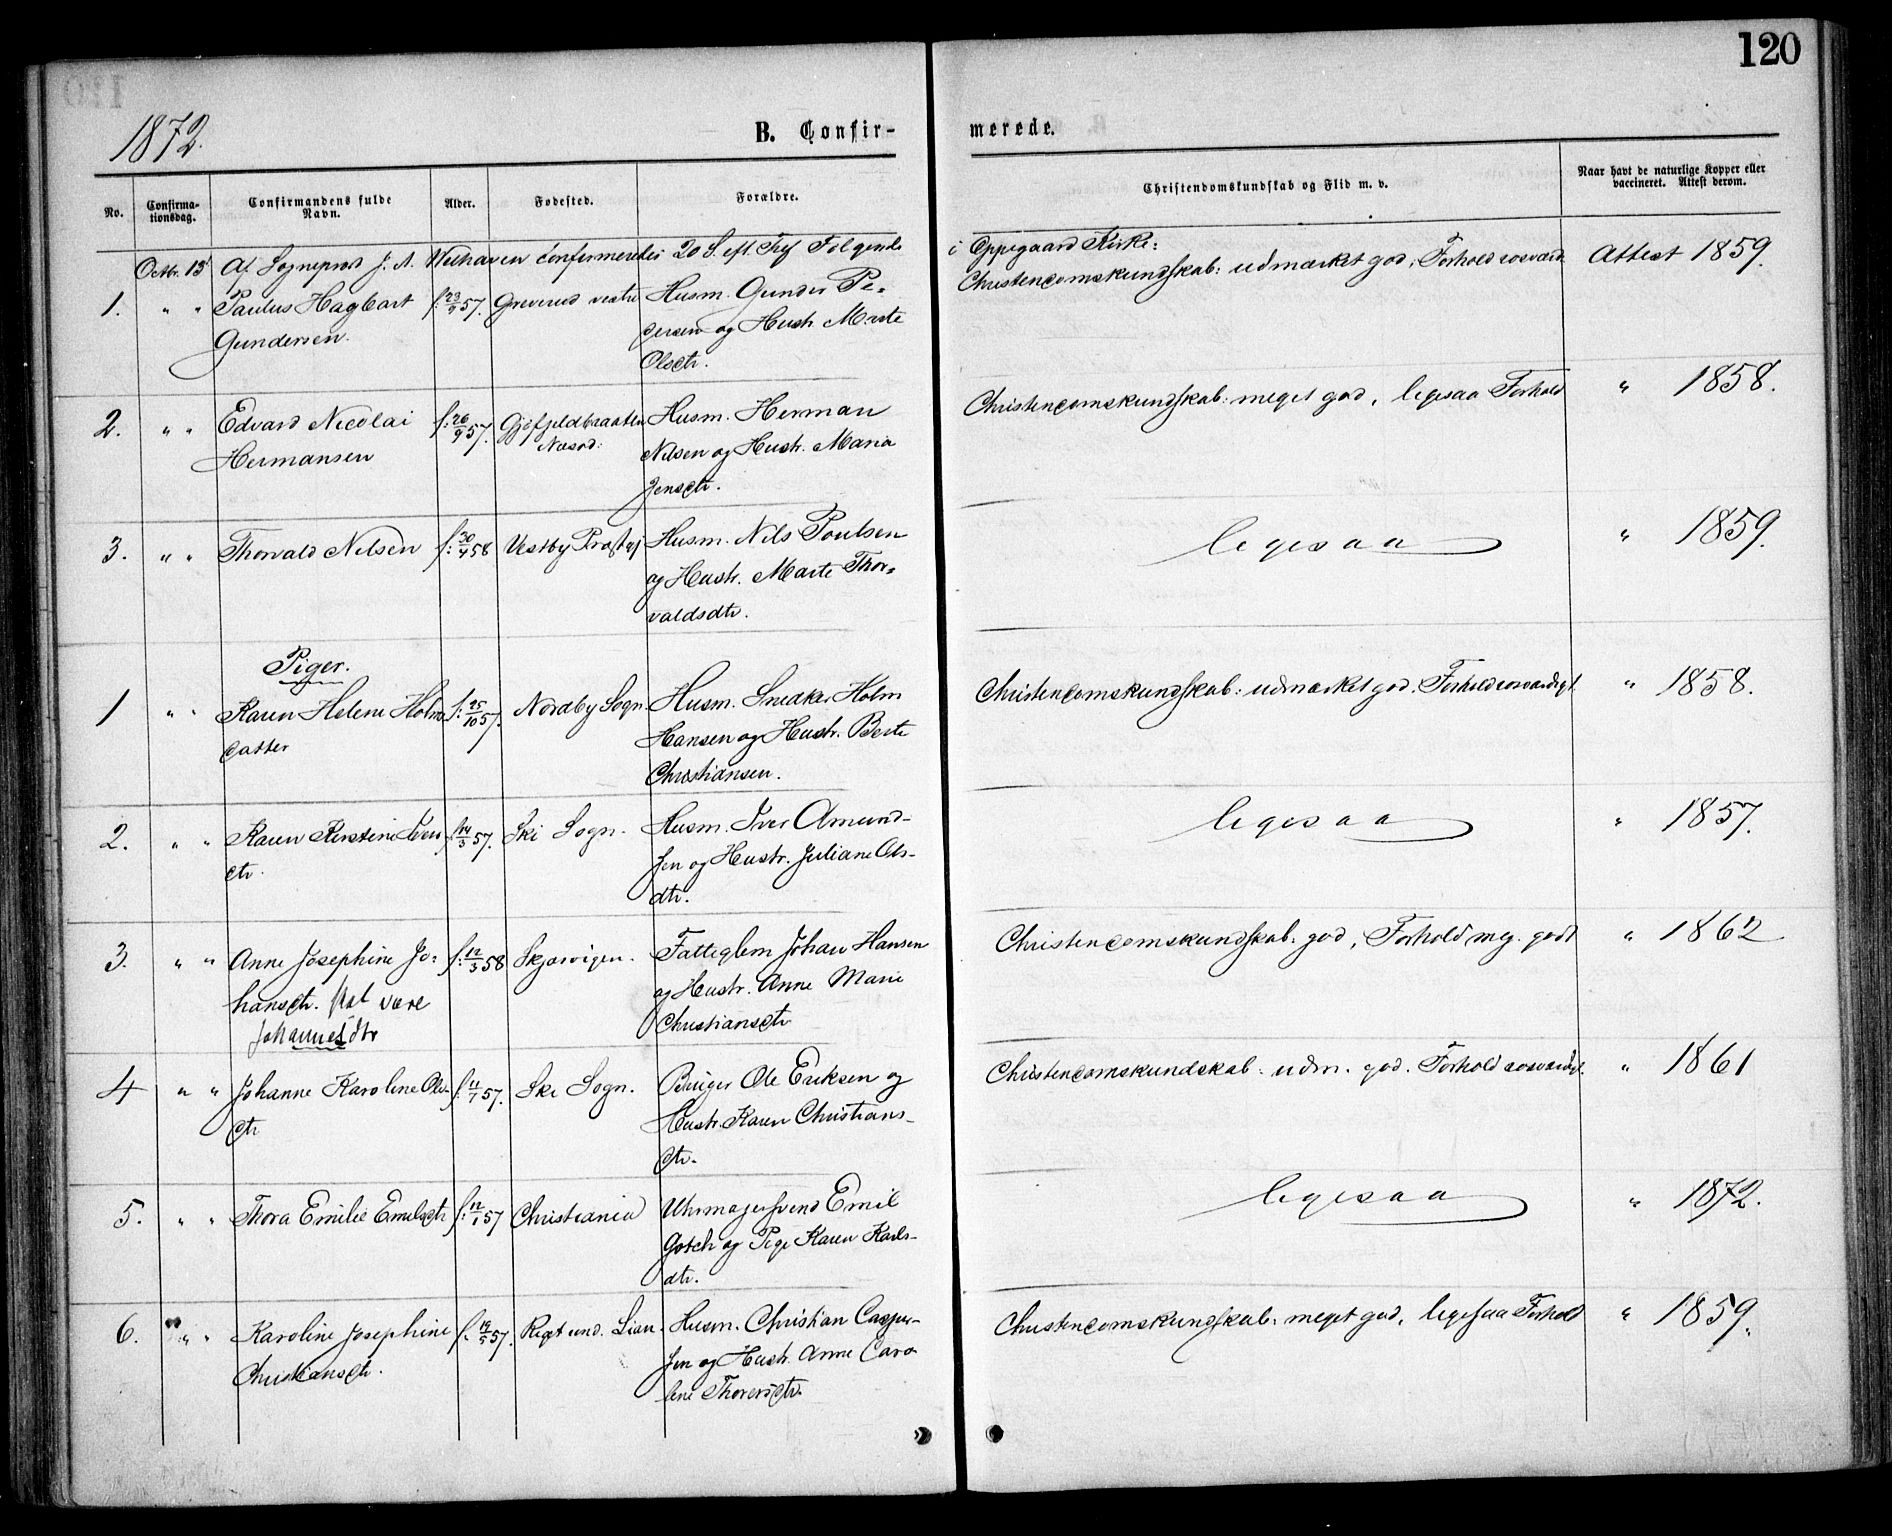 120
1872.
B. Confir-
merede.
No.
Confirma-
tionsdag.
Confirmandens fulde
Navn.
Alder.
Fødested.
Forældre.
Christendomskundskab og Flid m. v.
Naar havt de naturlige Kopper eller
vaccineret. Attest derom.
Octbr. 13 Af Sognepræst J. A. Welhaven confirmeredes 20 S. eft. Tref Følgende i Oppegaard Kirke:
1. " " Paulus Hagbart f: 57. Greverud vestre Husm. Gunder Pe- Christendomskundskab: udmærket god, Forhold rosværd. Attest 1859.
Gundersen. dersen og Hustr. Marte
Olsdtr.
2. " " Edvard Nicolai f: 26/9 57. Gjøfjeldbraaten Husm. Herman Christendomskundskab: meget god, ligesaa Forhold " 1858.
Hermansen Næsod: Nilsen og Hustr. Maria
Jensdtr.
3. " " Thorvald Nilsen f: 30/4 58 Vestby Prgj Husm. Nils Poulsen ligesaa " 1859.
og Hustr. Marte Thor-
valdsdtr.
Piger.
1 " " Karen Helene Holms f: 25/10 57. Nordby Sogn Husm. Snedker Holm Christendomskundskab: udmærket god. Forhold rosværdigt " 1858.
datter Hansen og Hustr. Berte
Christiansen.
2. " " Karen Kirstine Ivers 14/3 57. Ski Sogn. Husm. Iver Amund- ligesaa " 1857.
dtr. sen og Hustr. Juliane Ols-
dtr.
3. " " Anne Josephine Jo- f: 12/3 58 Skjærvigen. Fatteglem Johan Hansen Christendomskundskab: god, Forhold meg. godt " 1862
hansdtr. skal være og Hustr. Anne Marie
Johannesdtr Christiansdtr
4 " " Johanne Karoline Ols- f: 11/7 57. Ski Sogn. Bruger Ole Eriksen og Christendomskundskab: udm. god. Forhold rosværdigt. " 1861
dtr Hustr. Karen Christians-
dtr.
5. " " Thora Emilie Emilsdtr f: 12/1 57 Christiania Uhrmagersvend Emil ligesaa " 1872.
Gotch og Pige Karen Karls-
dtr.
6. " " Karoline Josephine f. 19/5 57. Rigt und. Lian Husm. Christian Casper- Christendomskundskab: meget god, ligesaa Forhold " 1859.
Christiansdtr. sen og Hustr. Anne Caro
line Thorersdtr.